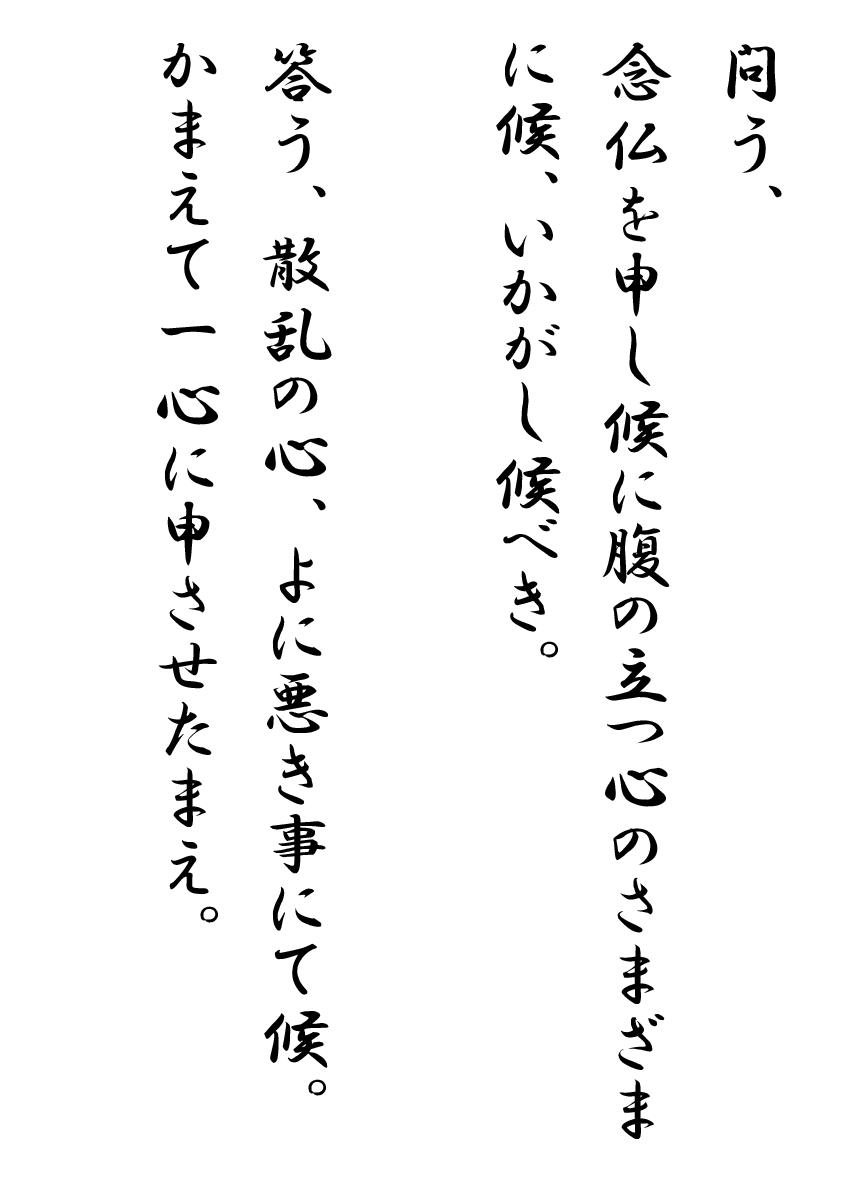 問う、
念仏を申し候に腹の立つ心のさまざま
に候、いかがし候べき。
答う、散乱の心、よに悪き事にて候。
かまえて一心に申させたまえ。